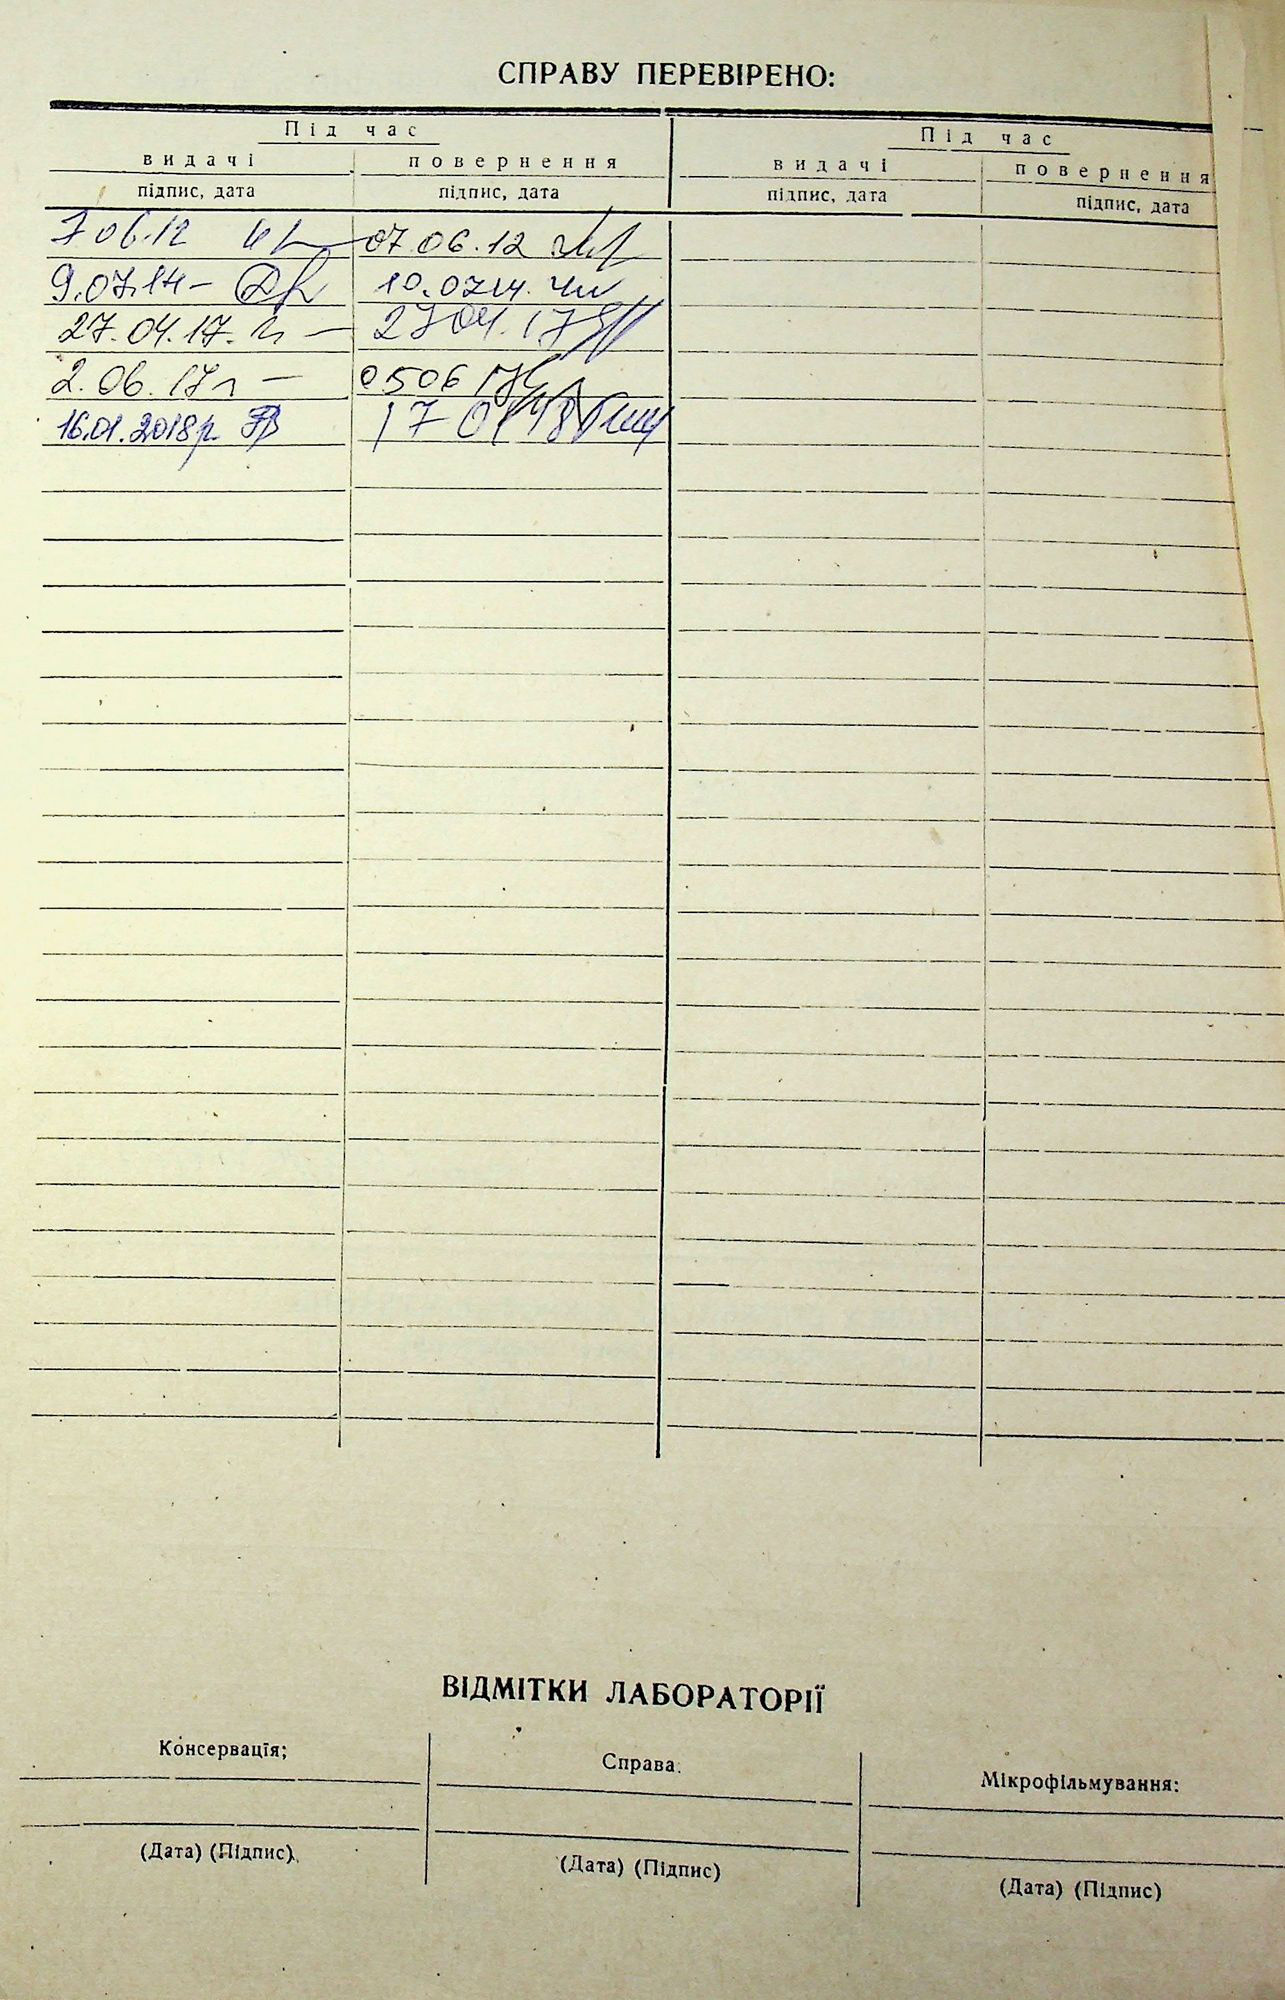 СПРАВУ ПЕРЕВІРЕНО:
Під час Під час
видачі повернення видачі повернення
підпис, дата підпис, дата підпис, дата підпис, дата
7 06.12 07.06.12
9.07.14- 10.0714.
27.04.17. 2704.17
2.06.17 - 0506 17
16.01.2018р 17 01 18
ВІДМІТКИ ЛАБОРАТОРІЇ
Консервація; Справа: Мікрофільмування:
(Дата) (Підпис) (Дата) (Підпис) (Дата) (Підпис)